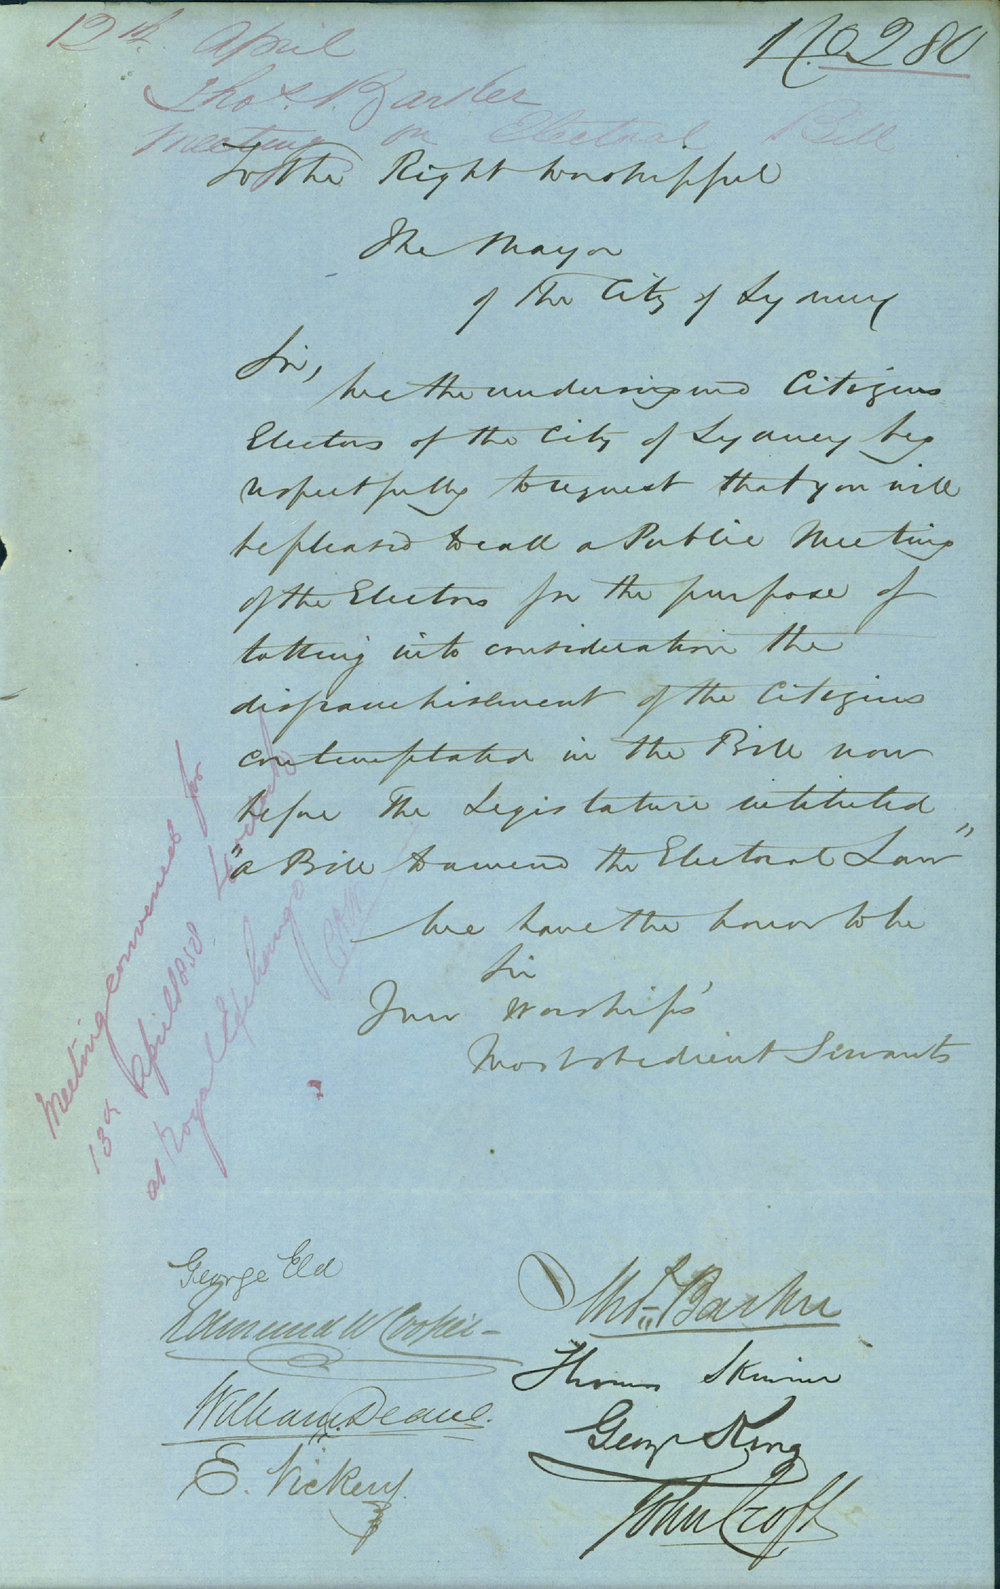 No 280
12th April
Thos. Barker
Meeting on Electoral Bill
To The Right Worshipful
The Mayor
of The City of Sydney
Sir,
We the undersigned Citizens
Electors of the City of Sydney beg
respectfully to request that you will
be pleased to call a Public Meeting
of the Electors for the purpose of
takting into consideration the
disfranchisement of the Citizens
contemplated in the Bill now
before The Legislature intituled
"a Bill to amend the Electoral Law"
We have the honor to be
Sir
Your Worship's
Most obedient Servants
Meeting convened for
13th April 1858 4 o'clock
at Royal Exchange
George Eld
Edmund W Cooper
William Deane.
E. Vickery.
Thos. Barker
Thomas Skinner
George King
John Croft